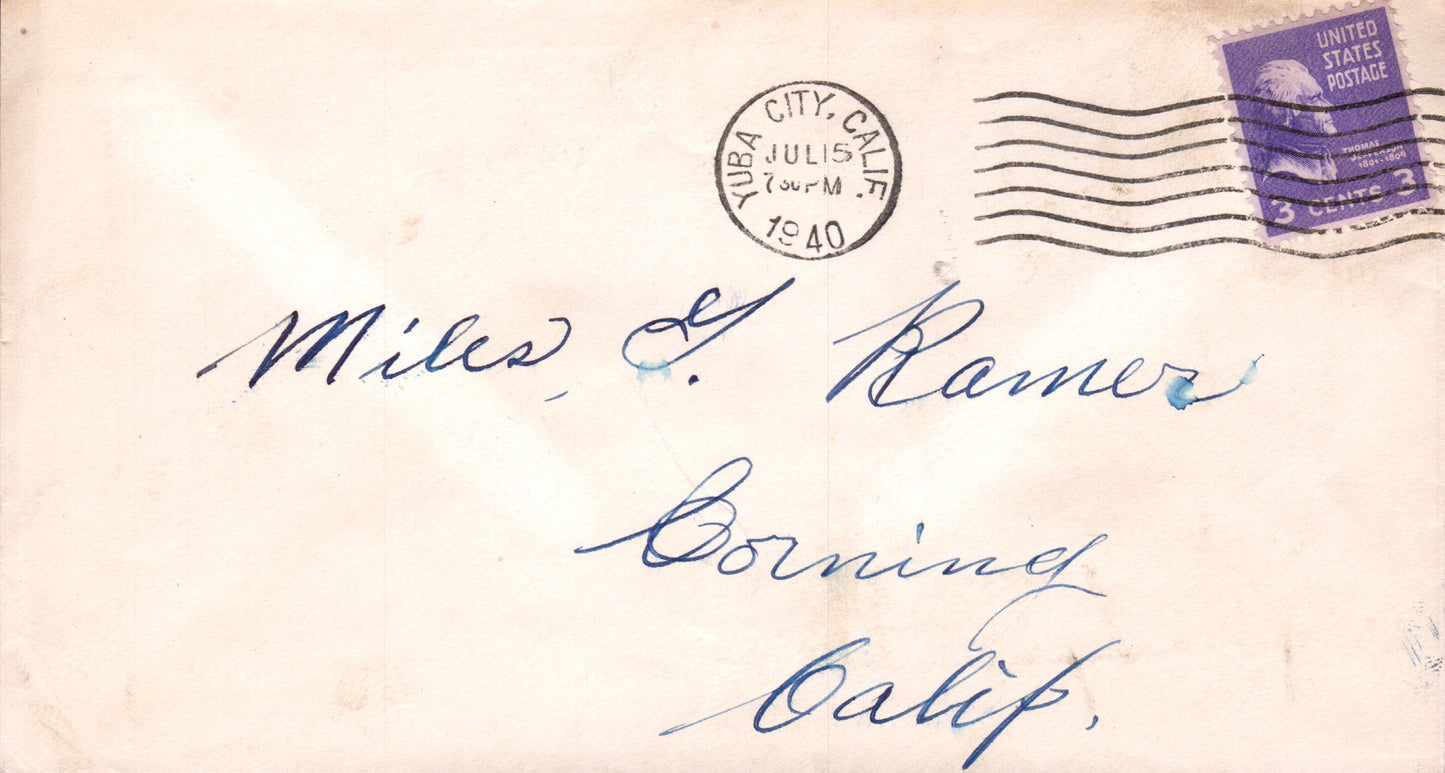 UNITED
STATES
POSTAGE
THOMAS
JEFFERSON
1801-1809
3 CENTS 3
YUBA CITY, CALIF.
JUL 15
7 30 PM
1940
Miles T. Ramer
Corning
Calif.